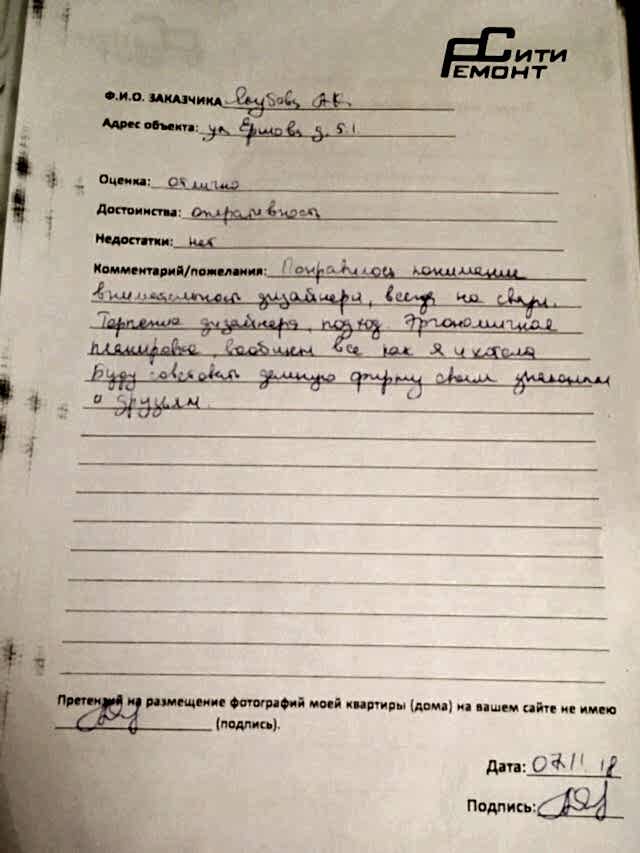 СИТИ
РЕМОНТ
Ф.И.О. ЗАКАЗЧИКА А.К.
Адрес объекта: ул д. 51
Оценка: отлично
Достоинства: оперативность
Недостатки: нет
Комментарий/пожелания: Понравилось понимание
внимательность дизайнера, всегда на связи.
Терпение дизайнера, подход. Эргономичная
планировка, вообщем все как я и хотела
Буду советовать данную фирму своим знакомым
и друзьям.
Претензий на размещение фотографий моей квартиры (дома) на вашем сайте не имею
(подпись).
Дата: 07.11.18
Подпись: